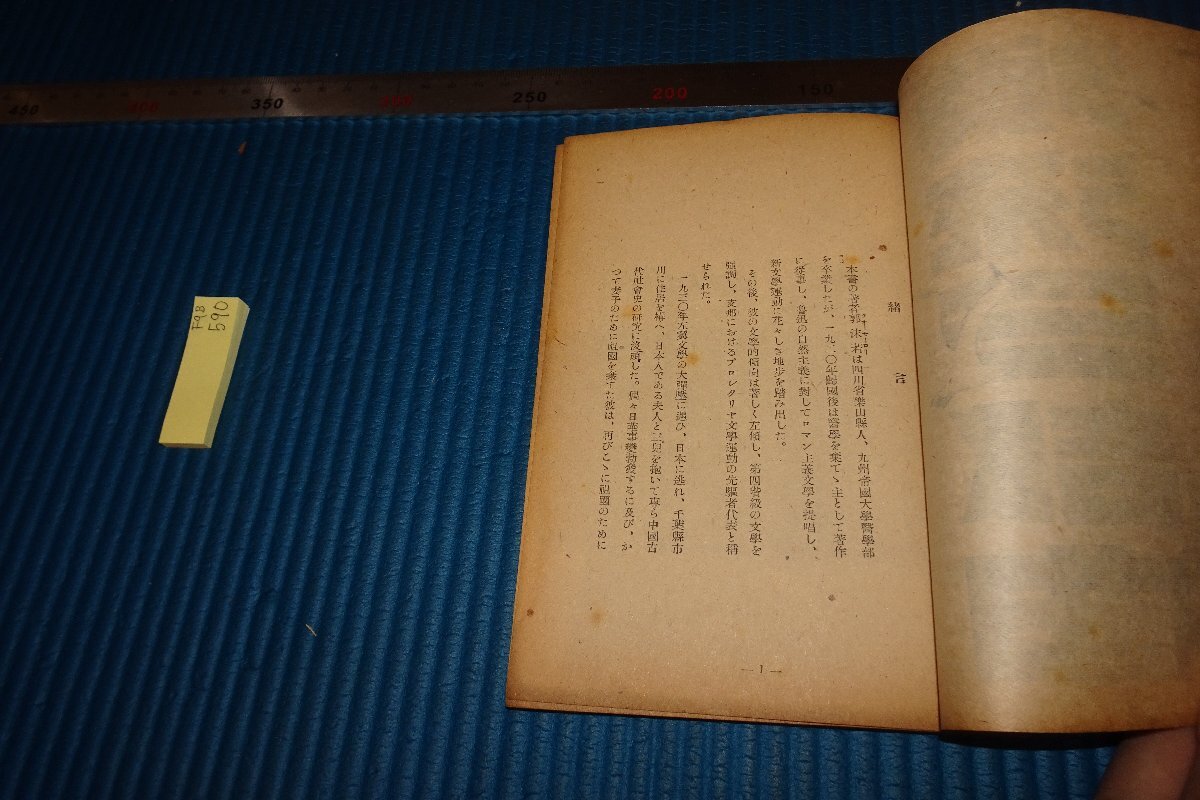 450 400 350 300 250 200 150
F9B
590
緒言
本書の著者郭沫若は四川省樂山縣人、九州帝國大學醫學部
を卒業したが、一九二〇年歸國後は醫學を棄てゝ主として著作
に從事し、魯迅の自然主義に對してロマン主義文學を提唱し、
新文學運動に花々しき地歩を踏み出した。
その後、彼の文學的傾向は著しく左傾し、第四階級の文學を
强調し、支那におけるプロレタリヤ文學運動の先驅者代表と稱
せられた。
一九三〇年左翼文學の大彈壓に遇ひ、日本に逃れ、千葉縣市
川に住居を構へ、日本人である夫人と三兒を抱いて專ら中國古
代社會史の硏究に沒頭した。偶々日華事變勃發するに及び、か
つて妻子のために祖國を棄てた彼は、再びこゝに祖國のために
— 1 —